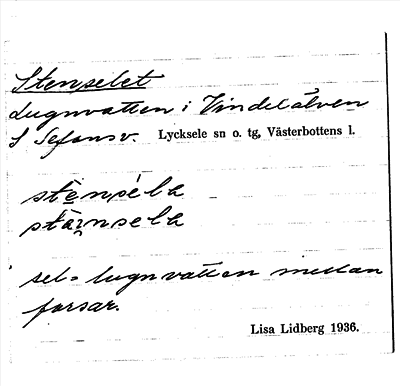 Stenselet
Lugnvatten i Vindelälven
S Sefansv. Lycksele sn o. tg, Västerbottens l.
stènséla
stäi̯nsela
sel = lugnvatten mellan
forsar.
Lisa Lidberg 1936.